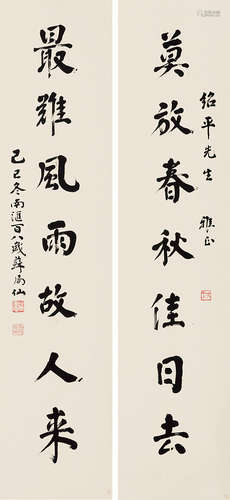 绍平先生 雅正
莫放春秋佳日去
最難風雨故人来
己巳冬南滙百八歲蘇局仙